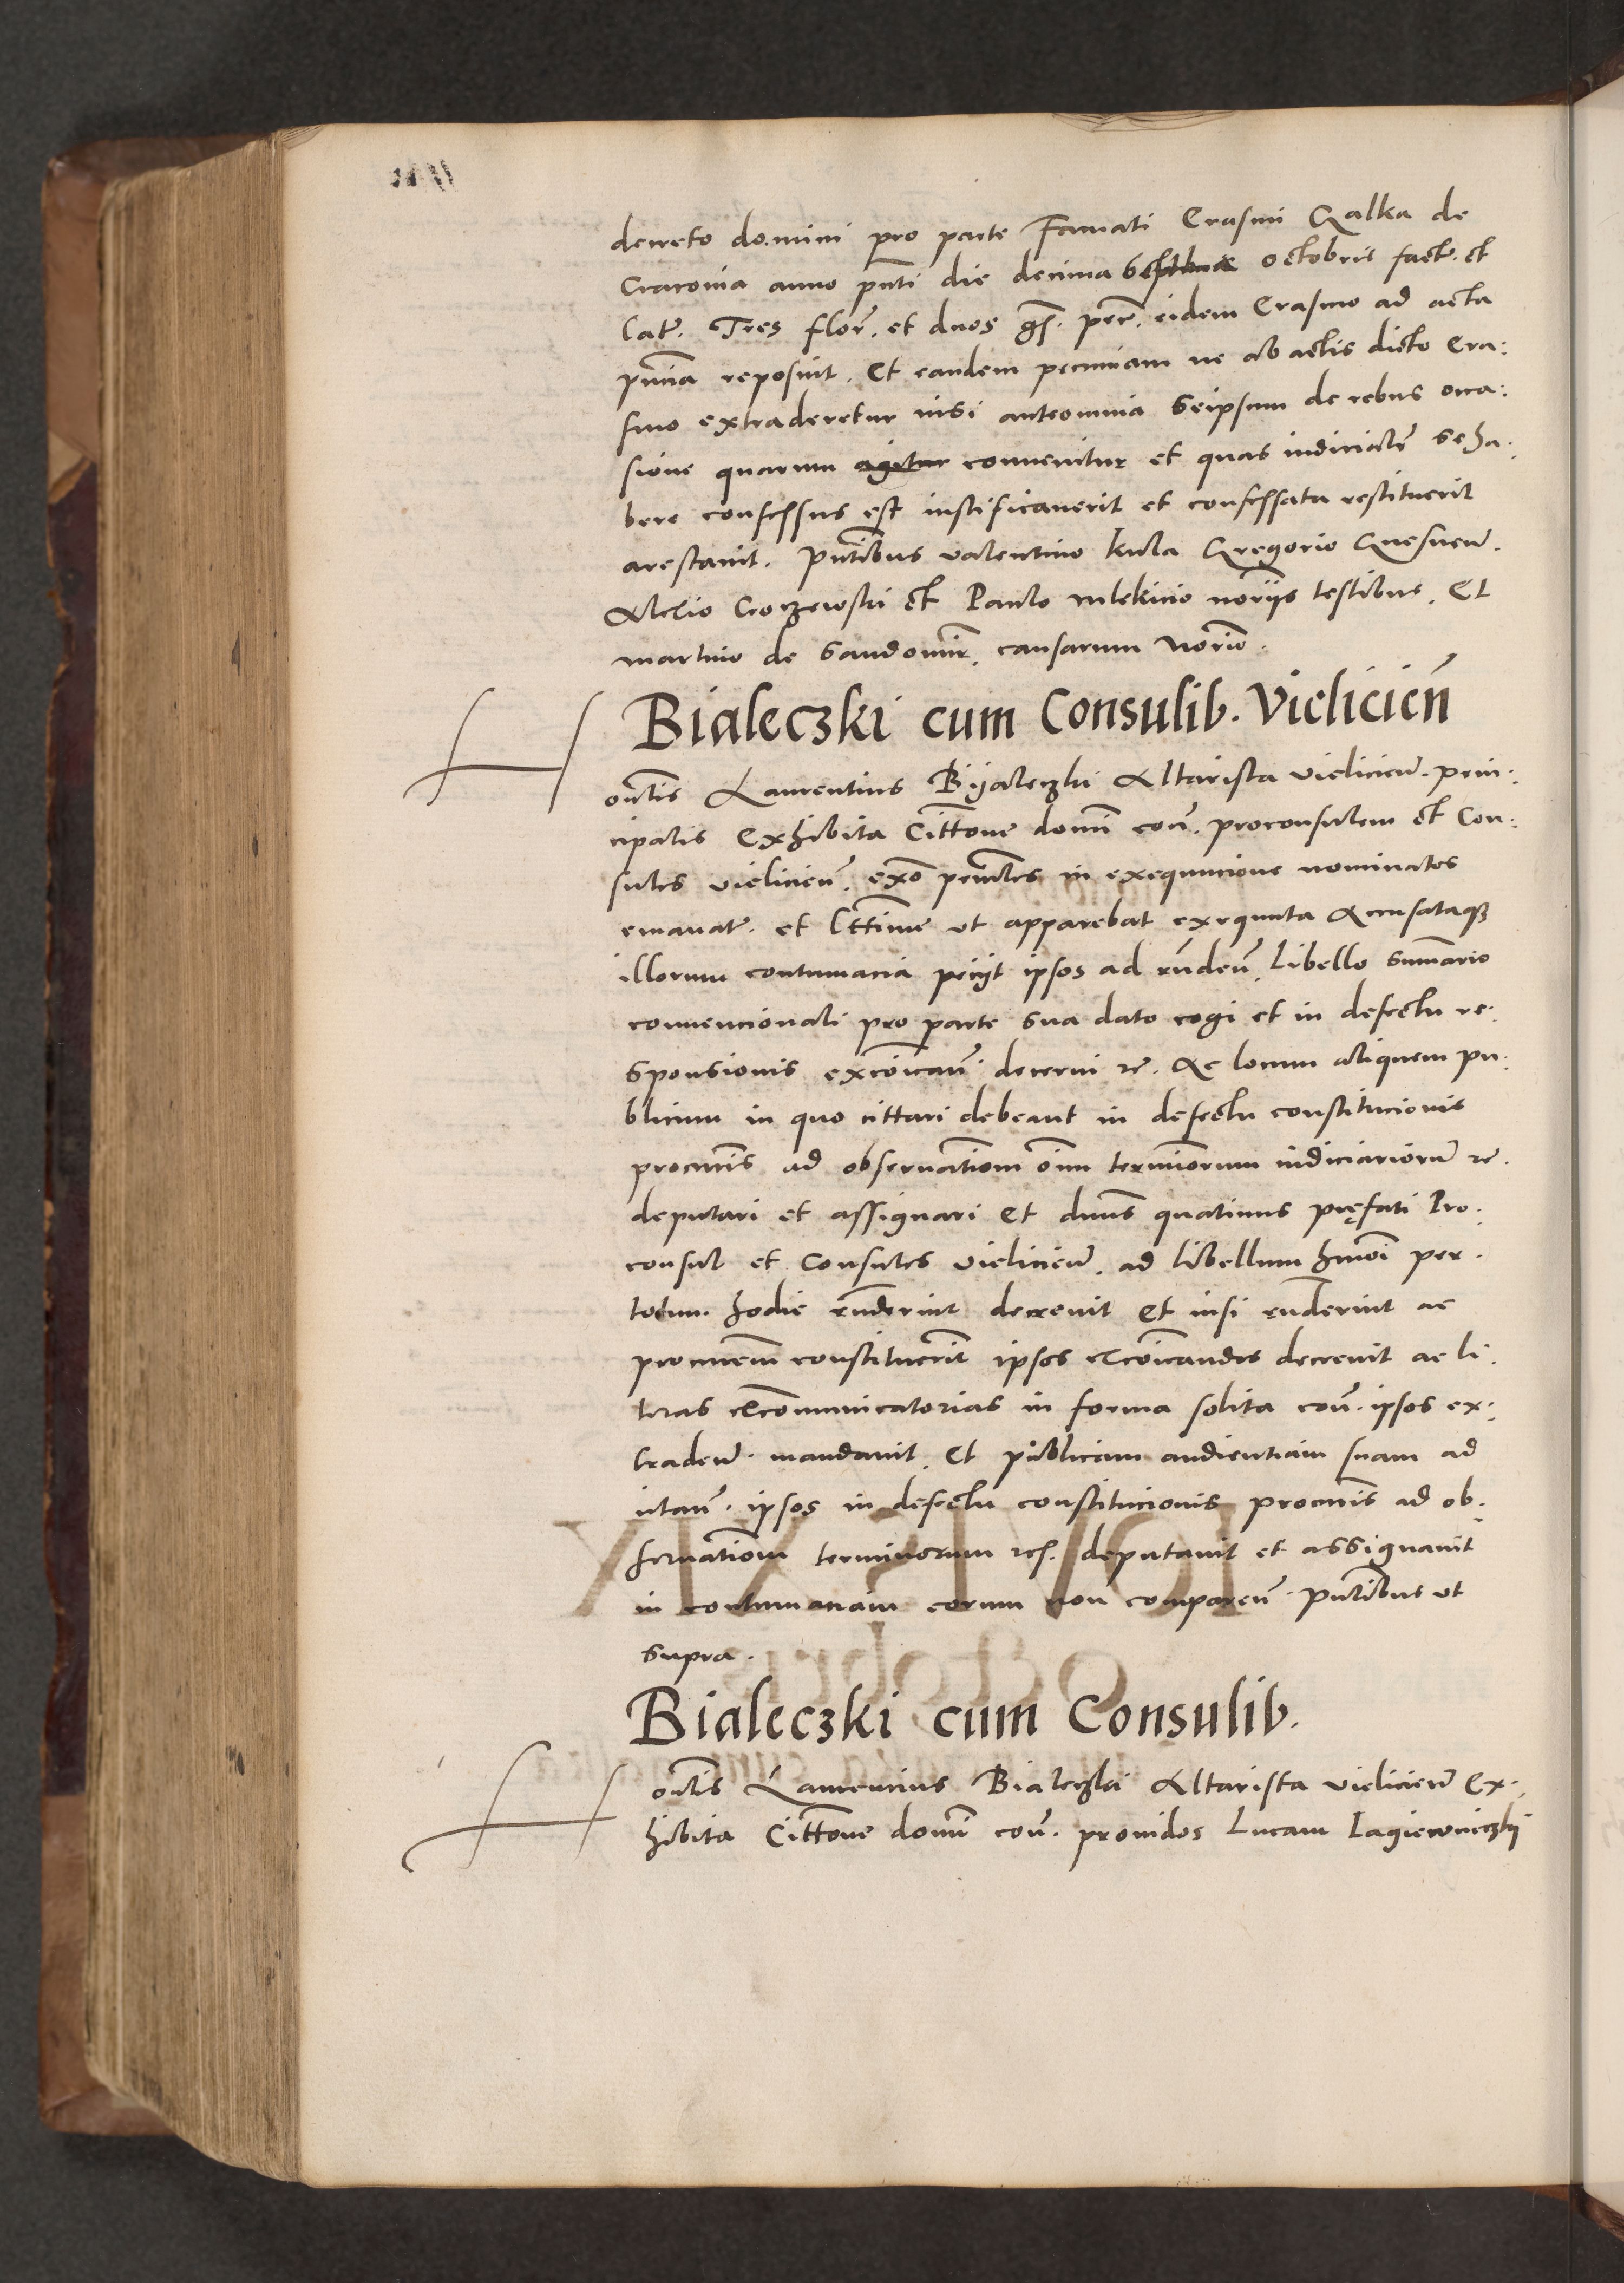 decreto domini pro parte Famati Erasmi Galka de
Cracovia anno pnti die decima septima octobris fact. et
lat. Tres flor. et duos gs. pecc. eidem Erasmo ad acta
pntia reposuit. Et eandem pecuniam ne ab actis dicto Era:
smo extraderetur nisi anteomnia seipsum de rebus occa:
sione quarum agitur convenitur et quas iudicialr se ha:
bere confessus est iustificaverit et confessata restituerit
arestavit. Pntibus valentino kula Gregorio Gnesnen.
Alexio Croczewski et Paulo mlekicio noriis testibus. Et
martino de Sandomir. causarum Norio.
Bialeczki cum Consulib. Vielicien
Hontis Laurentius Byaleczki Altarista vielicien. prin:
cipalis Exhibita Cittone domini con. proconsulem et Con:
sules vielicien. exo penales in exequucione nominatos
emanat. et lttime ut apparebat exequuta Accusataqz
illorum contumacia peciit ipsos ad rnden. Libello summario
convencionali pro parte sua dato cogi et in defectu re:
sponsionis excoican. decerni rc. Ac locum aliquem pu:
blicum in quo cittari debeant in defectu constitucionis
procuris ad observationem oium terminorum iudiciariorum rc.
deputari et assignari Et dnus quatinus pręfati Pro:
consul et Consules vielicien. ad libellum hmoi per
totum hodie rnderint decrevit Et nisi rnderint ac
procurem constituerint ipsos excoicandos decrevit ac li:
teras excommunicatorias in forma solita con. ipsos ex:
traden. mandavit. Et publicam audientiam suam ad
citan. ipsos in defectu constitucionis procuris ad ob:
servationem terminorum res. deputavit et assignavit
in contumaciam eorum non comparen. Pntibus ut
supra.
Bialeczki cum Consulib.
Hontis Laurencius Bialeczki Altarista vielicien Ex:
hibita Cittone domini con. providos Lucam Lagiewniczky